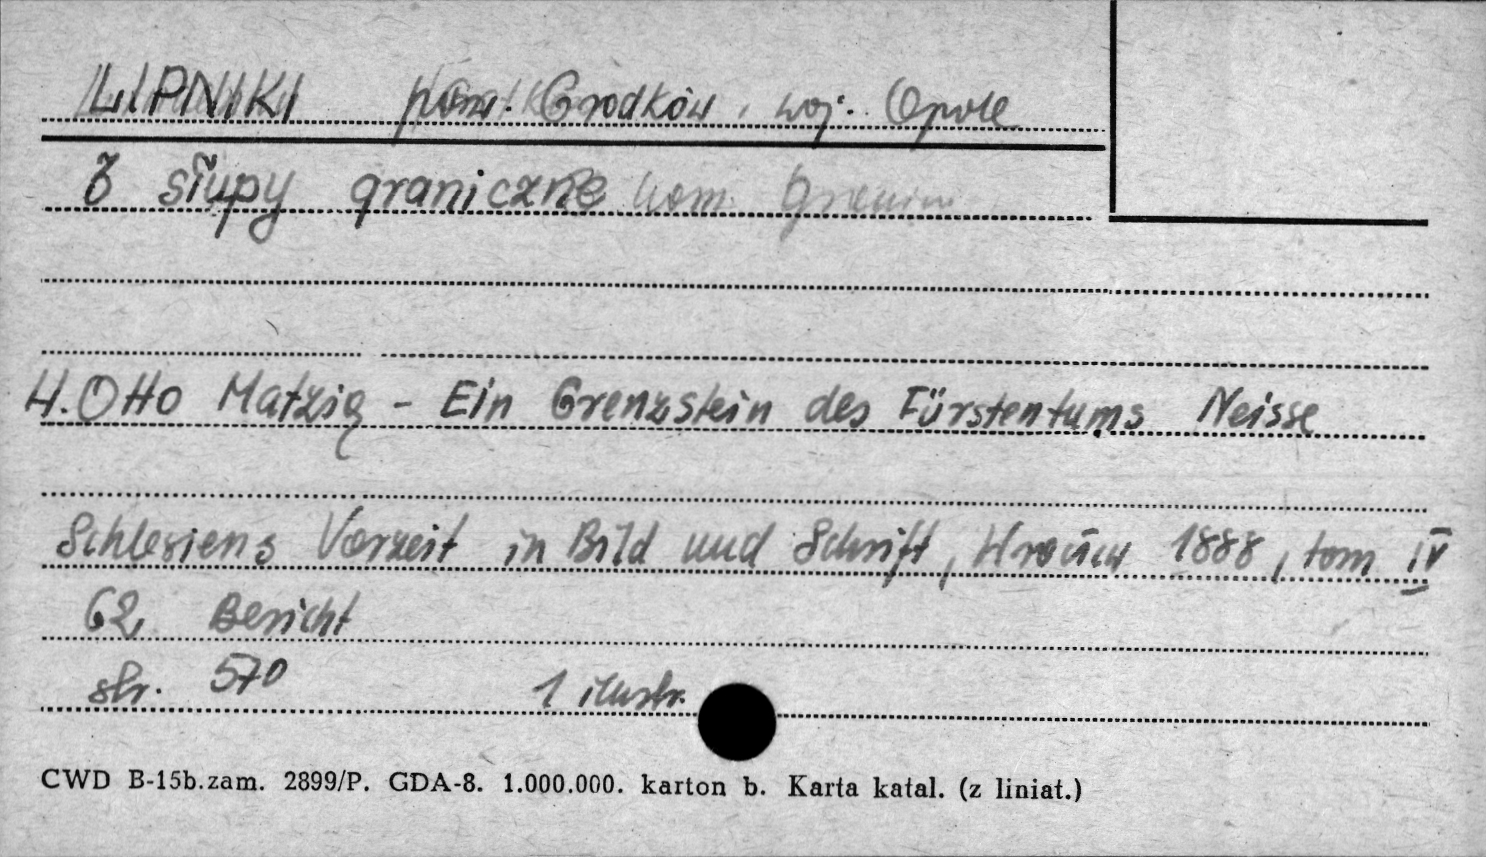 LIPNIKI pow. Grodków, woj. Opole
słupy graniczne kom.
H. Otto Matzig - Ein Grenzstein des Fürstentums Neisse
Schlesiens Vorzeit in Bild und Schrift, Wrocław 1888, tom IV
62 Bericht
str. 570 1 ilustr.
CWD B-15b.zam. 2899/P. GDA-8. 1.000.000. karton b. Karta katal. (z liniat.)